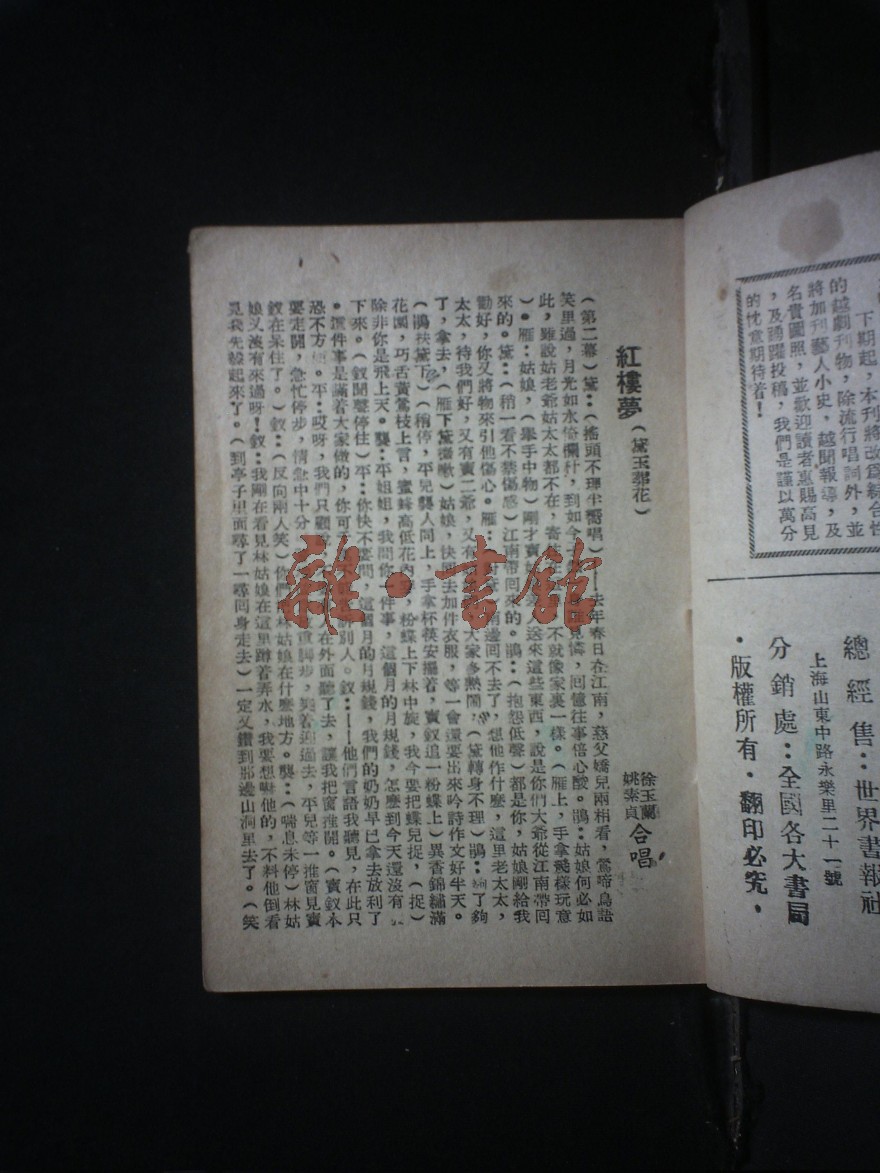 下期起，本刊將改為綜合性
的越劇刊物，除流行唱詞外，並
將加刊藝人小史，越閒報導，及
名貴圖照，並歡迎讀者惠賜高見
，及踴躍投稿，我們是謹以萬分
的忱意期待着！
總經售：世界書報社
上海山東中路永樂里二十一號
分銷處：全國各大書局
·版權所有·翻印必究·
紅樓夢（黛玉葬花）
徐玉蘭
姚素貞
合唱
（第二幕）黛：（搖頭不理半嚮唱）——去年春日在江南，慈父嬌兒兩相看，鶯啼鳥語
笑里過，月光如水倚欄杆，到如今 見憐，回憶往事倍心酸。鵑：姑娘何必如
此，雖說姑老爺姑太太都不在，寄 不就像家裏一樣。（雁上，手拿幾樣玩意
）。雁：姑娘，（舉手中物）剛才寶 人送來這些東西，說是你們大爺從江南帶回
來的。黛：（稍一看不禁傷感）江南帶回來的。鵑：（抱怨低聲）都是你，姑娘剛給我
勸好，你又將物來引他傷心。雁： 南邊回不去了，想他作什麽，這里老太太，
太太，待我們好，又有寶二爺，又有 大家多熱鬧，（黛轉身不理）鵑： 了夠
了，拿去，（雁下黛 嗽）姑娘，快 去加件衣服，等一會還要出來吟詩作文好半天。
（鵑扶黛下）（稍停，平兒襲人同上，手拿杯筷安攞着，寶釵追一粉蝶上）異香錦繡滿
花園，巧舌黃鶯枝上言，蜜蜂高低花內 ，粉蝶上下林中旋，我今要把蝶兒捉，（捉）
除非你是飛上天。襲：平姐姐，我問你一件事，這個月的月規錢，怎麽到今天還沒有
下來。（釵聞聲停住）平：你快不要問，這個月的月規錢，我們的奶奶早已拿去放利了
。這件事是瞞着大家做的，你可 訴別人。釵：——他們言語我聽見，在此只
恐不方 。平：哎呀，我們只顧 在外面聽了去，讓我把窗推開。（寶釵本
要走開，急忙停步，情急中十分 重脚步，笑着迎過去，平兒等一推窗見寶
釵在呆住了。）釵：（反向兩人笑）你們 林姑娘在什麽地方。襲：（喘息未停）林姑
娘又沒有來過呀！釵：我剛在看見林姑娘在這里蹲着弄水，我要想嚇他的，不料他倒看
見我先躱起來了。（到亭子里面尋了一尋回身走去）一定又鑽到那邊山洞里去了。（笑
雜·書館